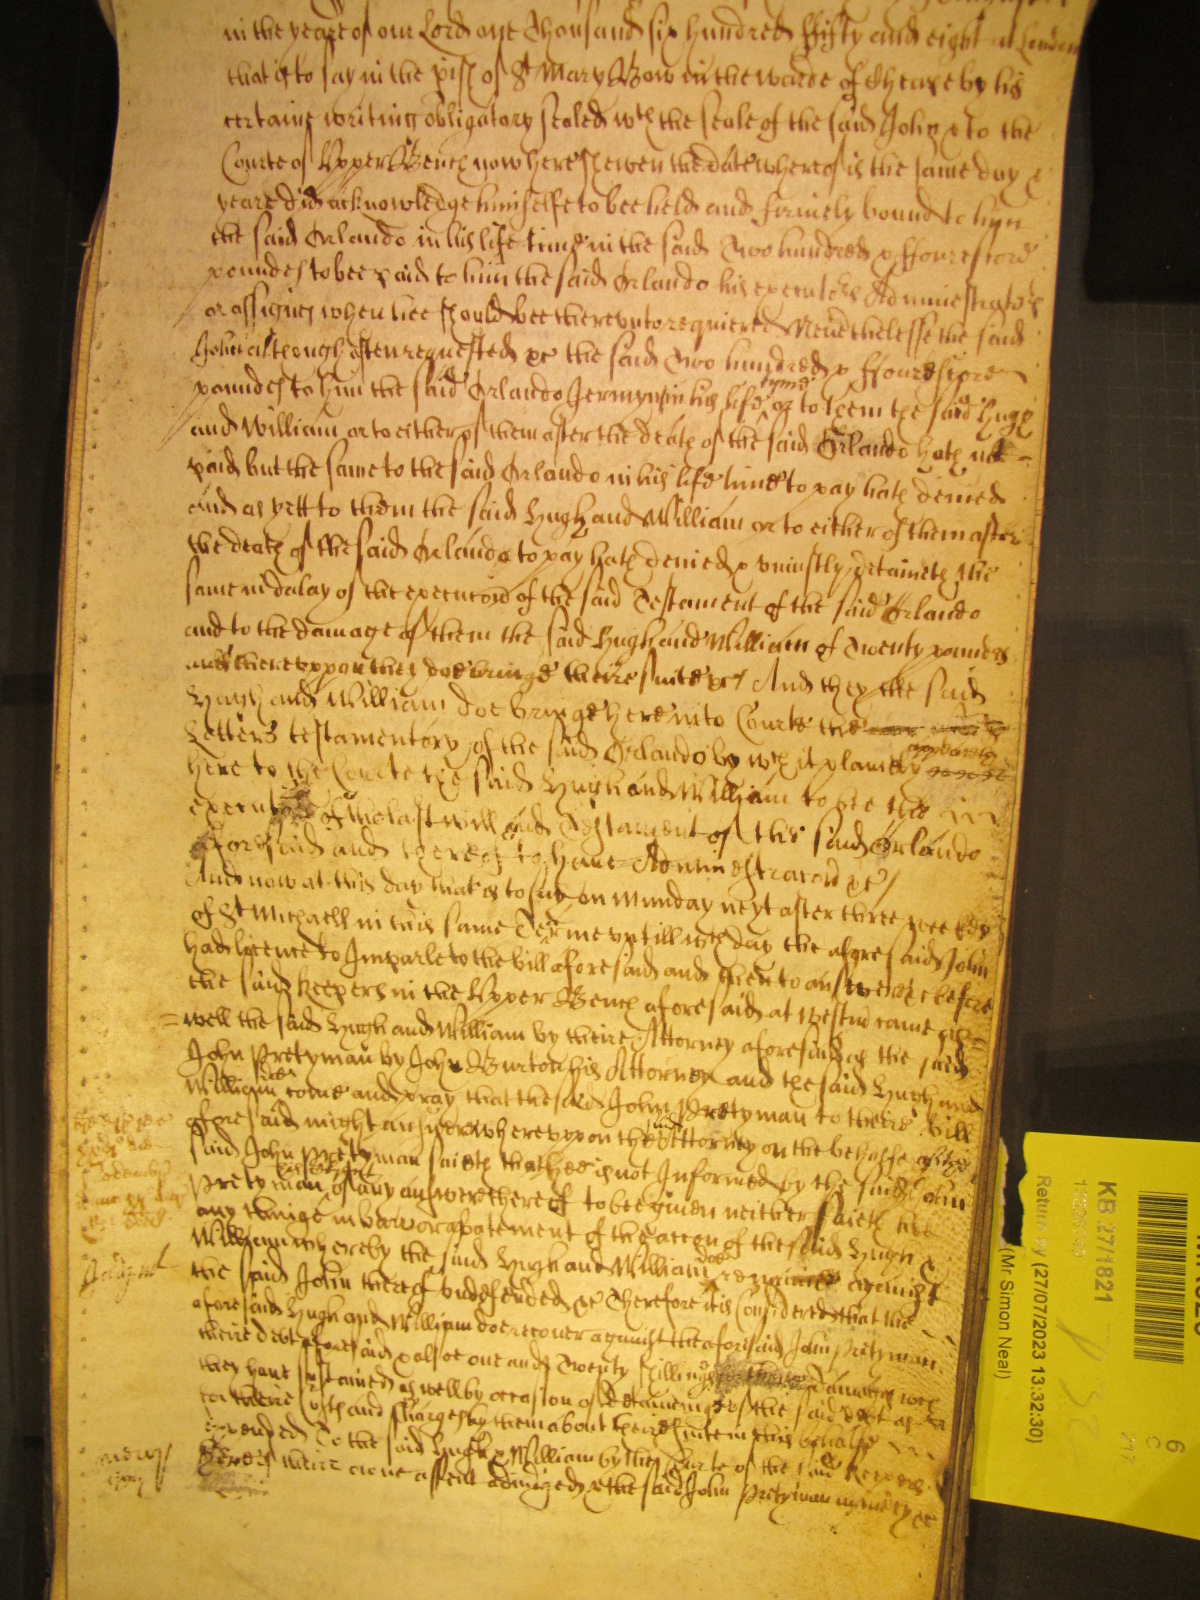 in the yeare of our Lord one Thousand six hundred ffifty and eight at London
that is to say in the pish of St Mary Bow in the warde of Cheape by his
certaine writing obligatory sealed wth the seale of the said John & to the
Courte of Upper Bench now here shewen the date whereof is the same day &
yeare did acknowledge himselfe to bee held and firmely bound to him
the said Orlando in his life time in the said Two hundred & ffourescore
poundes to bee paid to him the said Orlando his executors Administrators
or assignes when hee should bee thereunto requiered Neverthelesse the said
John although often requested &c the said Two hundred & ffourescore
poundes to him the said Orlando Jermyn in his life tyme or to them the said Hugh
and William or to either of them after the death of the said Orlando hath not
paid but the same to the said Orlando in his life time to pay hath denied
and as yett to them the said Hugh and William or to either of them after
the death of the said Orlando to pay hath denied & uniustly detaineth the
same in dalay of the execucion of the said Testament of the said Orlando
and to the damage of them the said Hugh and William of Twenty pounds
and thereuppon they doe bringe theire suite &c And they the said
Hugh and William doe bringe here into Courte the
Letters testamentory of the said Orlando by wch it plainely appeareth
here to the Courte the said Hugh and William to bee the
executors of the last will and Testament of the said Orlando
aforesaid and thereof to have Administracion &c
And now at this day that is to say on Munday next after three weekes
of St Michaell in this same Terme untill wch day the aforesaid John
had licence to Imparle to the bill aforesaid and then to answere &c before
the said keepers in the Upper Bench aforesaid at Westm came as
well the said Hugh and William by theire Attorney aforesaid as the said
John Pretyman by John Burton his Attorney and the said Hugh and
William doe come and pray that the said John Pretyman to theire bill
aforesaid might answere whereuppon the said Attorney on the behalfe of the
said John Pretyman saieth that hee is not Informed by the said John
Pretyman his client of any answere thereof to bee given neither saieth hee
any thinge in barr or abatement of the accon of the said Hugh &
William whereby the said Hugh and William doe remaine against
the said John thereof undefended &c Therefore it is Considered that the
aforesaid Hugh and William doe recover against the aforesaid John Pretyman
theire debt aforesaid & alsoe one and Twenty shillings for theire Damages wch
they have sustained as well by occasion of detaineing of the said debt as
for theire Costs and Charges by them about theire suite in this behalfe
expended To the said Hugh & William by the Courte of the said keepers
here at theire owne assent adiudged & the said John Pretyman in mercy &c
Judgmt
mercy
KB 27/1821
Return by (27/07/2023 13:32:30)
(Mr Simon Neal)